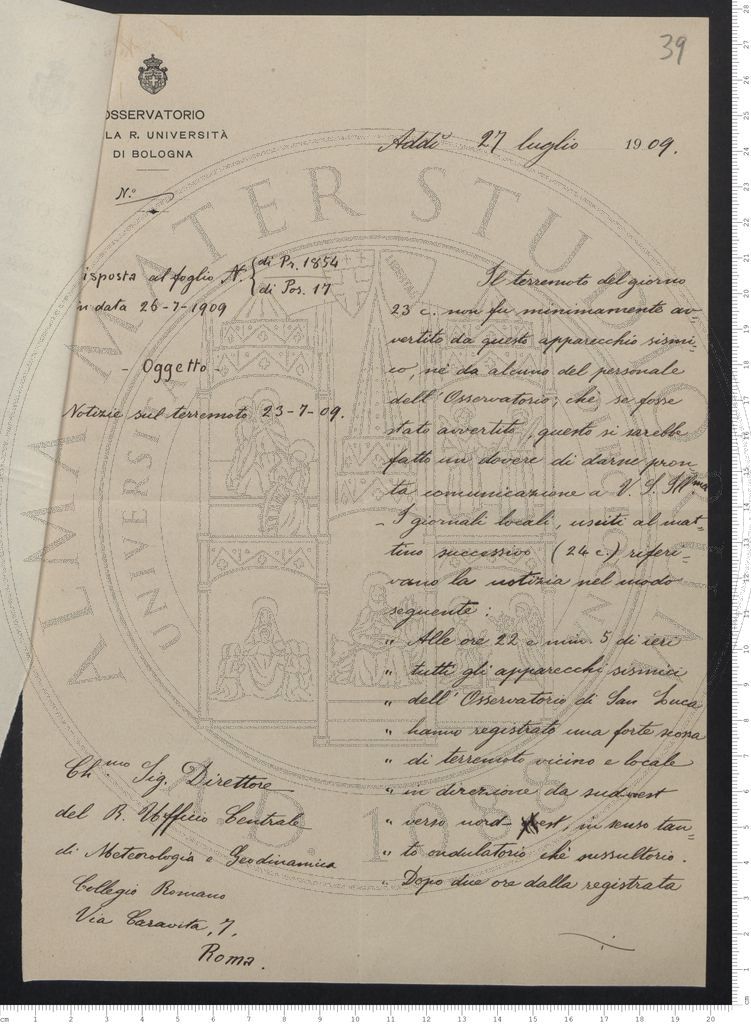 39
OSSERVATORIO
LA R. UNIVERSITÀ
DI BOLOGNA
N.º
Addì 27 luglio 1909.
isposta al foglio N. { di Pr. 1854
di Pos. 17
in data 26-7-1909
- Oggetto -
Notizie sul terremoto 23-7-09.
Il terremoto del giorno
23 c. non fu minimamente av-
vertito da questo apparecchio sismi-
co, nè da alcuno del personale
dell'Osservatorio; chè se fosse
stato avvertito, questo si sarebbe
fatto un dovere di darne pron
ta comunicazione a V. S. Ill.ma
- I giornali locali, usciti al mat-
tino successivo (24 c.) riferi-
vano la notizia nel modo
seguente:
" Alle ore 22 e min. 5 di ieri
" tutti gli apparecchi sismici
" dell'Osservatorio di San Luca
" hanno registrato una forte scossa
" di terremoto vicino e locale
" in direzione da sud-west
" verso nord-est, in senso tan-
" to ondulatorio chè sussultorio.
" Dopo due ore dalla registrata
Ch.mo Sig. Direttore
del R. Ufficio Centrale
di Meteorologia e Geodinamica
Collegio Romano
Via Caravita, 7.
Roma.
ALMA MATER STUDIORUM
A.D. 1088